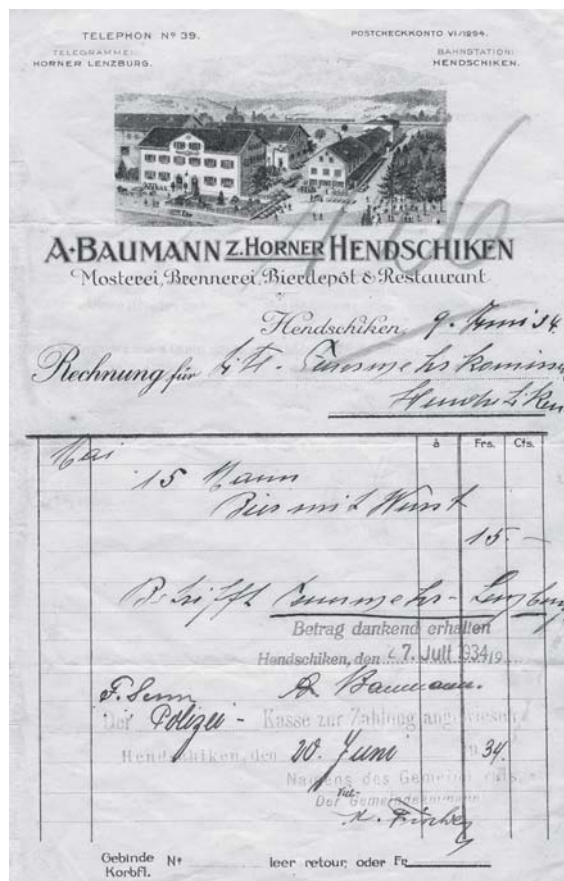 TELEPHON Nº 39.
POSTCHECKKONTO VI/1294.
TELEGRAMME:
HORNER LENZBURG.
BAHNSTATION:
HENDSCHIKEN.
A·BAUMANN Z.HORNER HENDSCHIKEN
Mosterei, Brennerei, Bierdepôt & Restaurant
Hendschiken, 9. Juni 34.
Rechnung für Tit. Feuerwehrkommiss
Hendschiken
à Frs. Cts.
Mai
15 Mann
Bier mit Wurst
15.-
Betrifft Feuerwehr - Lenzburg
Betrag dankend erhalten
Hendschiken, den 7. Juli 1934 19
F. Senn A Baumann.
Der Polizei - Kasse zur Zahlung angewiesen
Hendschiken, den 20. Juni 34.
Namens des Gemeinderats
Der Vice- Gemeindeammann
Gebinde
Korbfl. Nº leer retour, oder Fr.